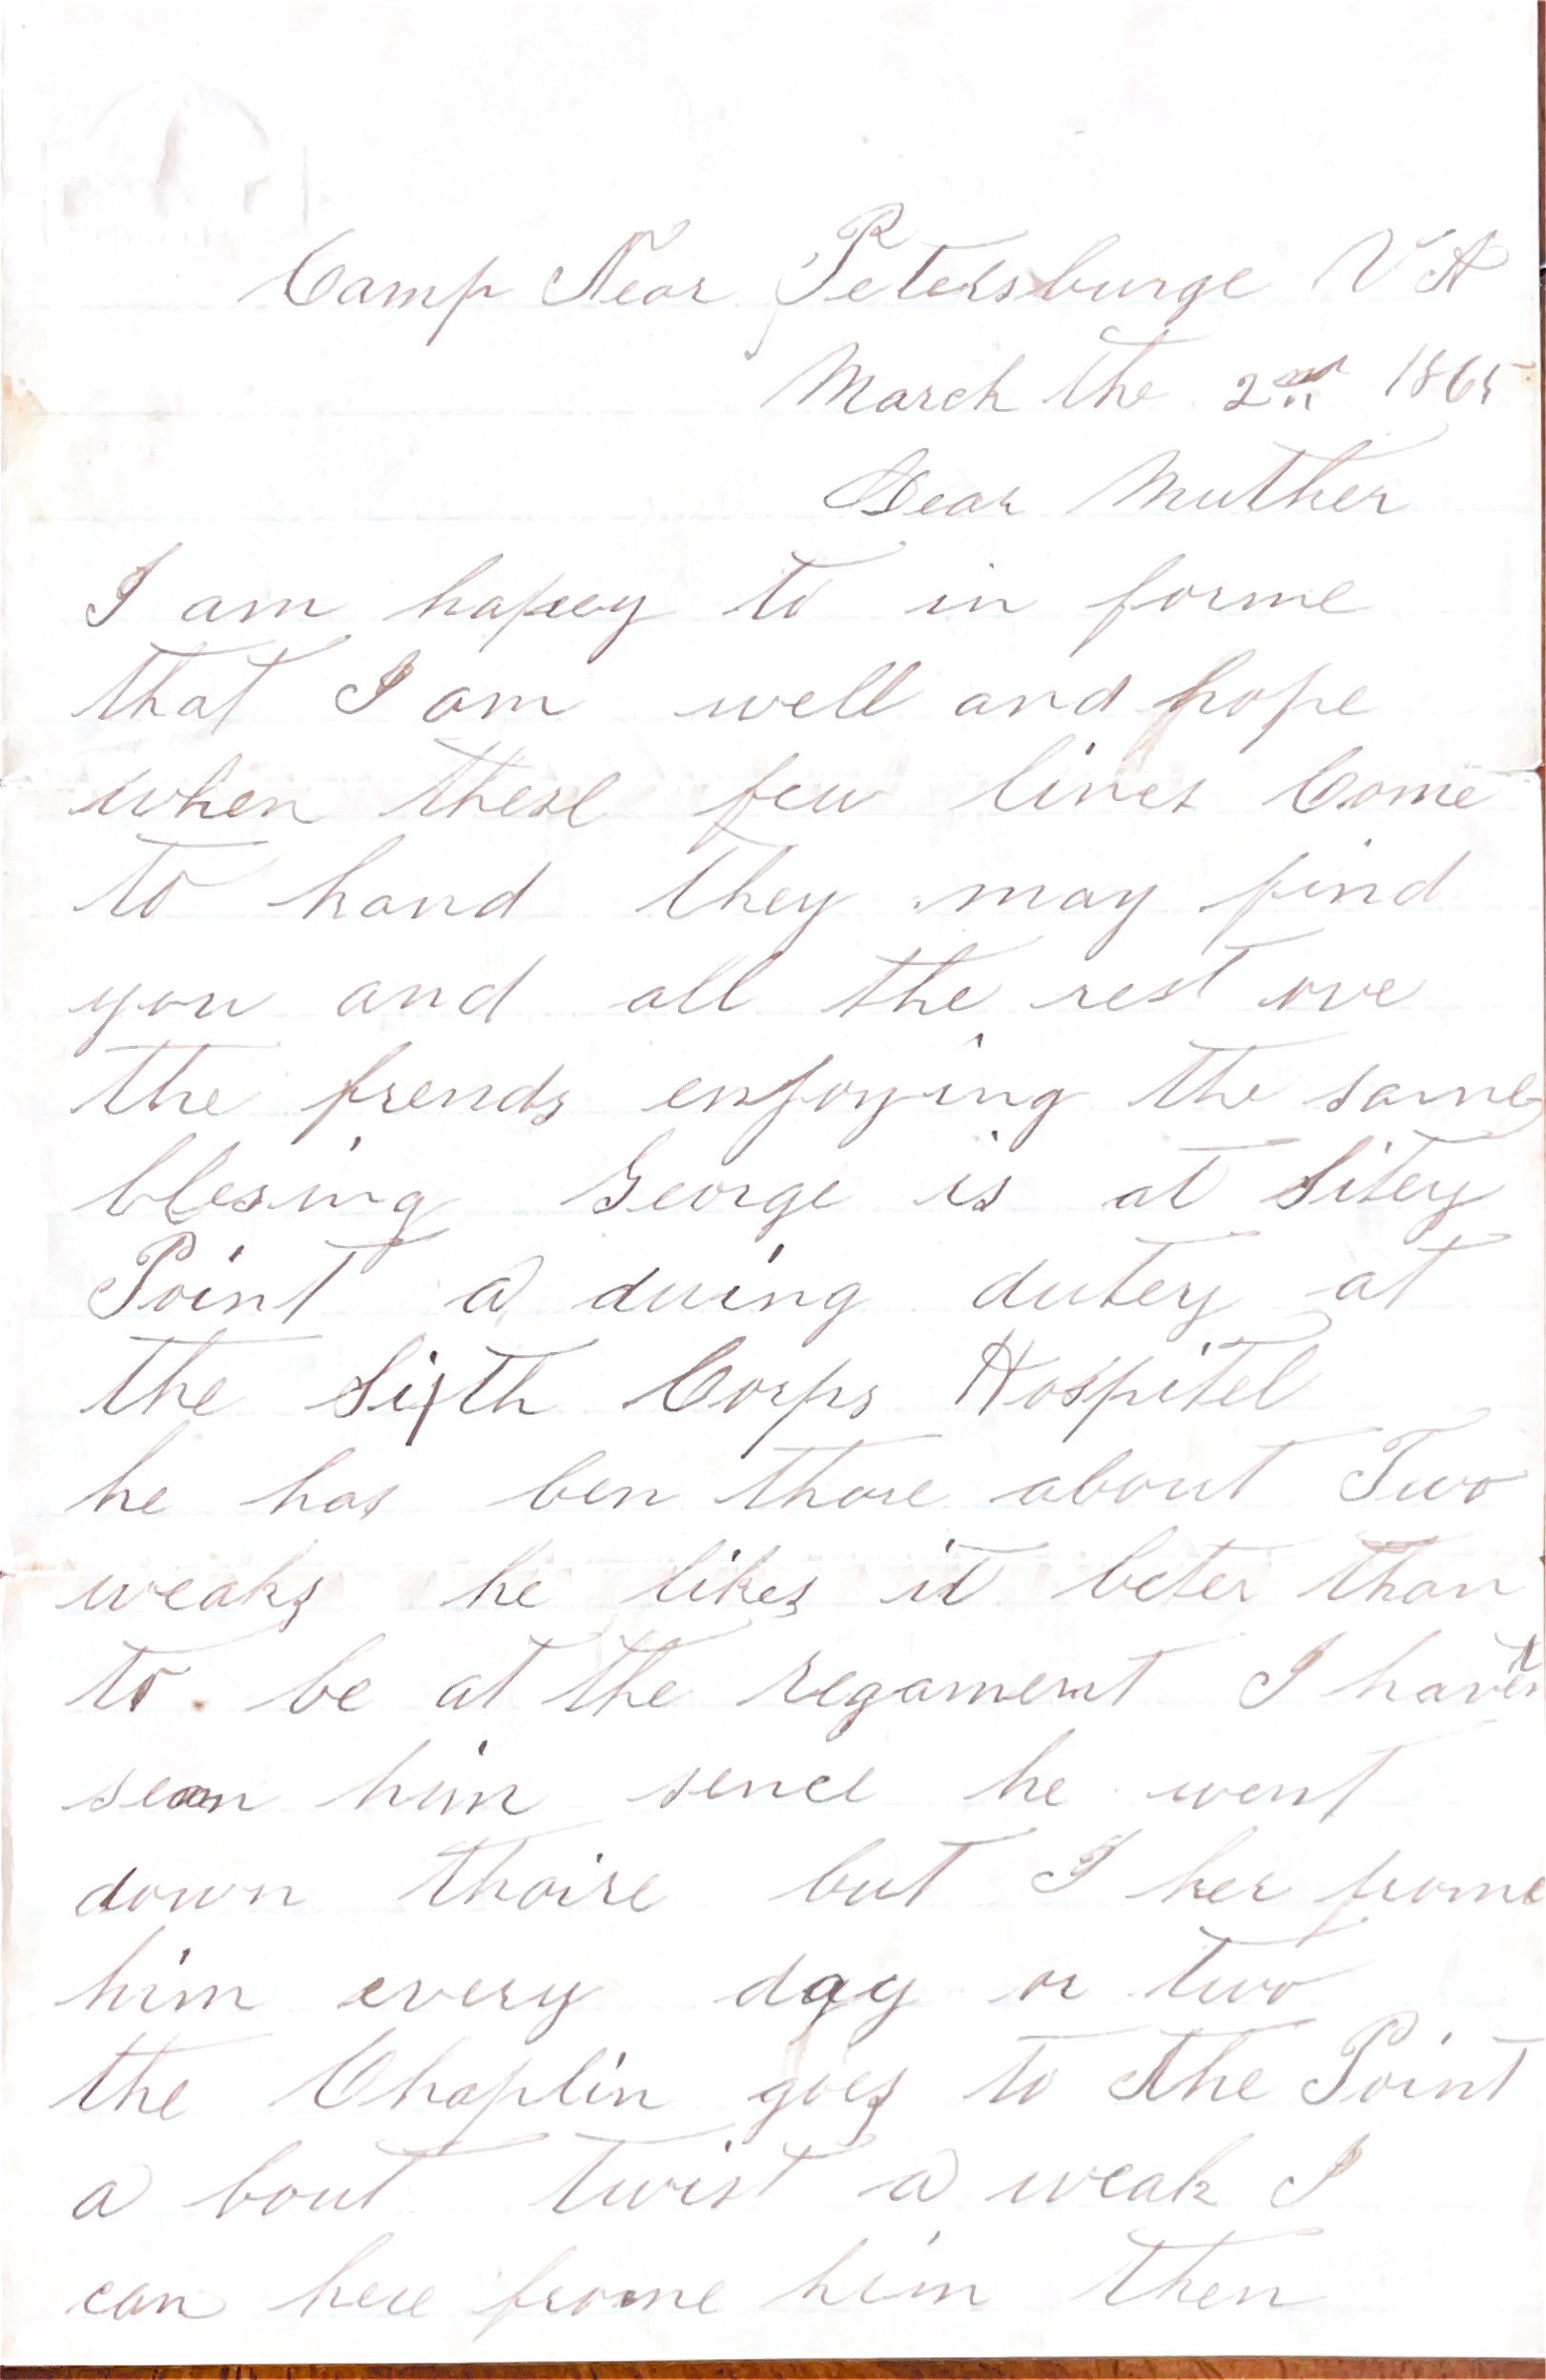 Camp Near Petersburge VA
March the 2nd 1865
Dear Muther
I am happy to in forme
that I am well and hope
when these few lines Come
to hand they may find
you and all the rest ove
the frends enjoying the same
blesing George is at Sitey
Point a duing dutey at
the Sixth Corps Hospitel
he has ben thare about Two
weaks he likes it beter than
to be at the regament I havent
seen him sence he went
down thaire but I her frome
him every day or two
the Chaplin goes to the Point
a bout twist a weak I
can here frome him then